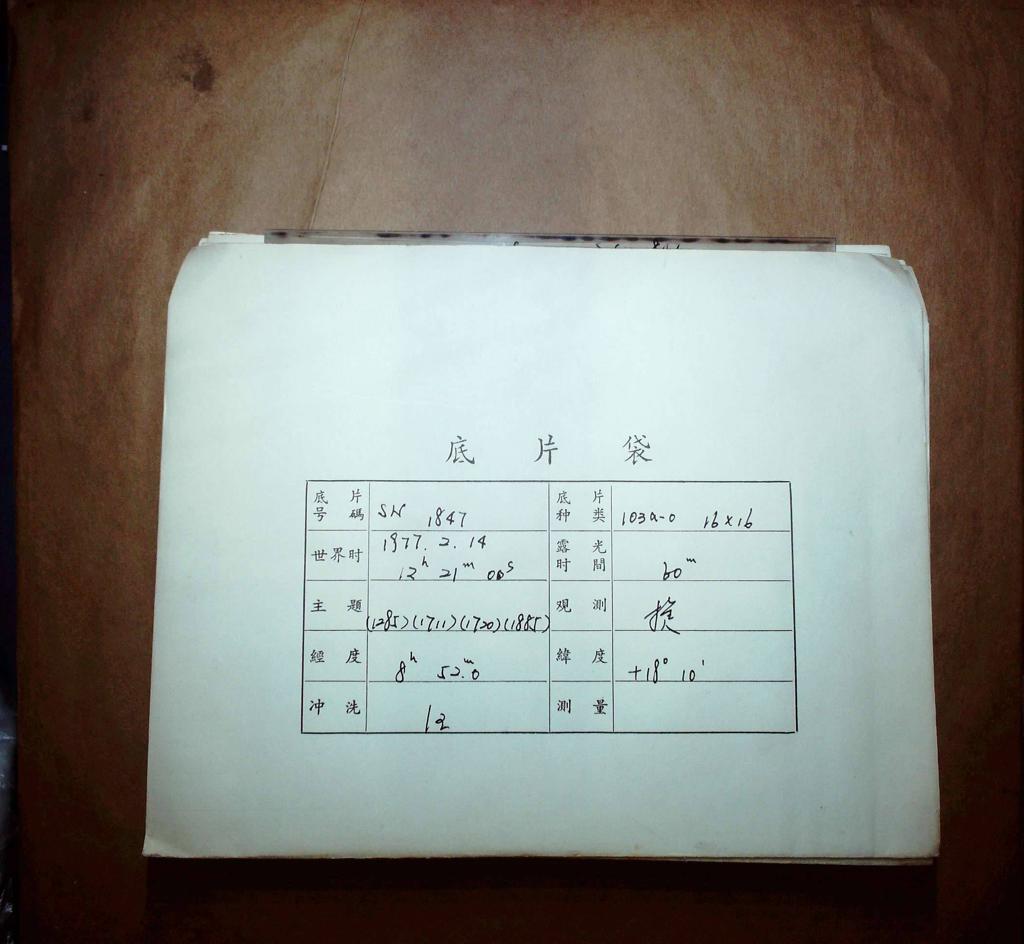 底 片 袋
底 片 号 碼 SN 1847 底 片 种 类 103a-0 16×16
世界时 1977. 2. 14 12h 21m 00s 露 光 时 間 60m
主 題 (1285)(1711)(1720)(1885) 观 測
經 度 8h 52m.0 緯 度 +18° 10'
冲 洗 测 量